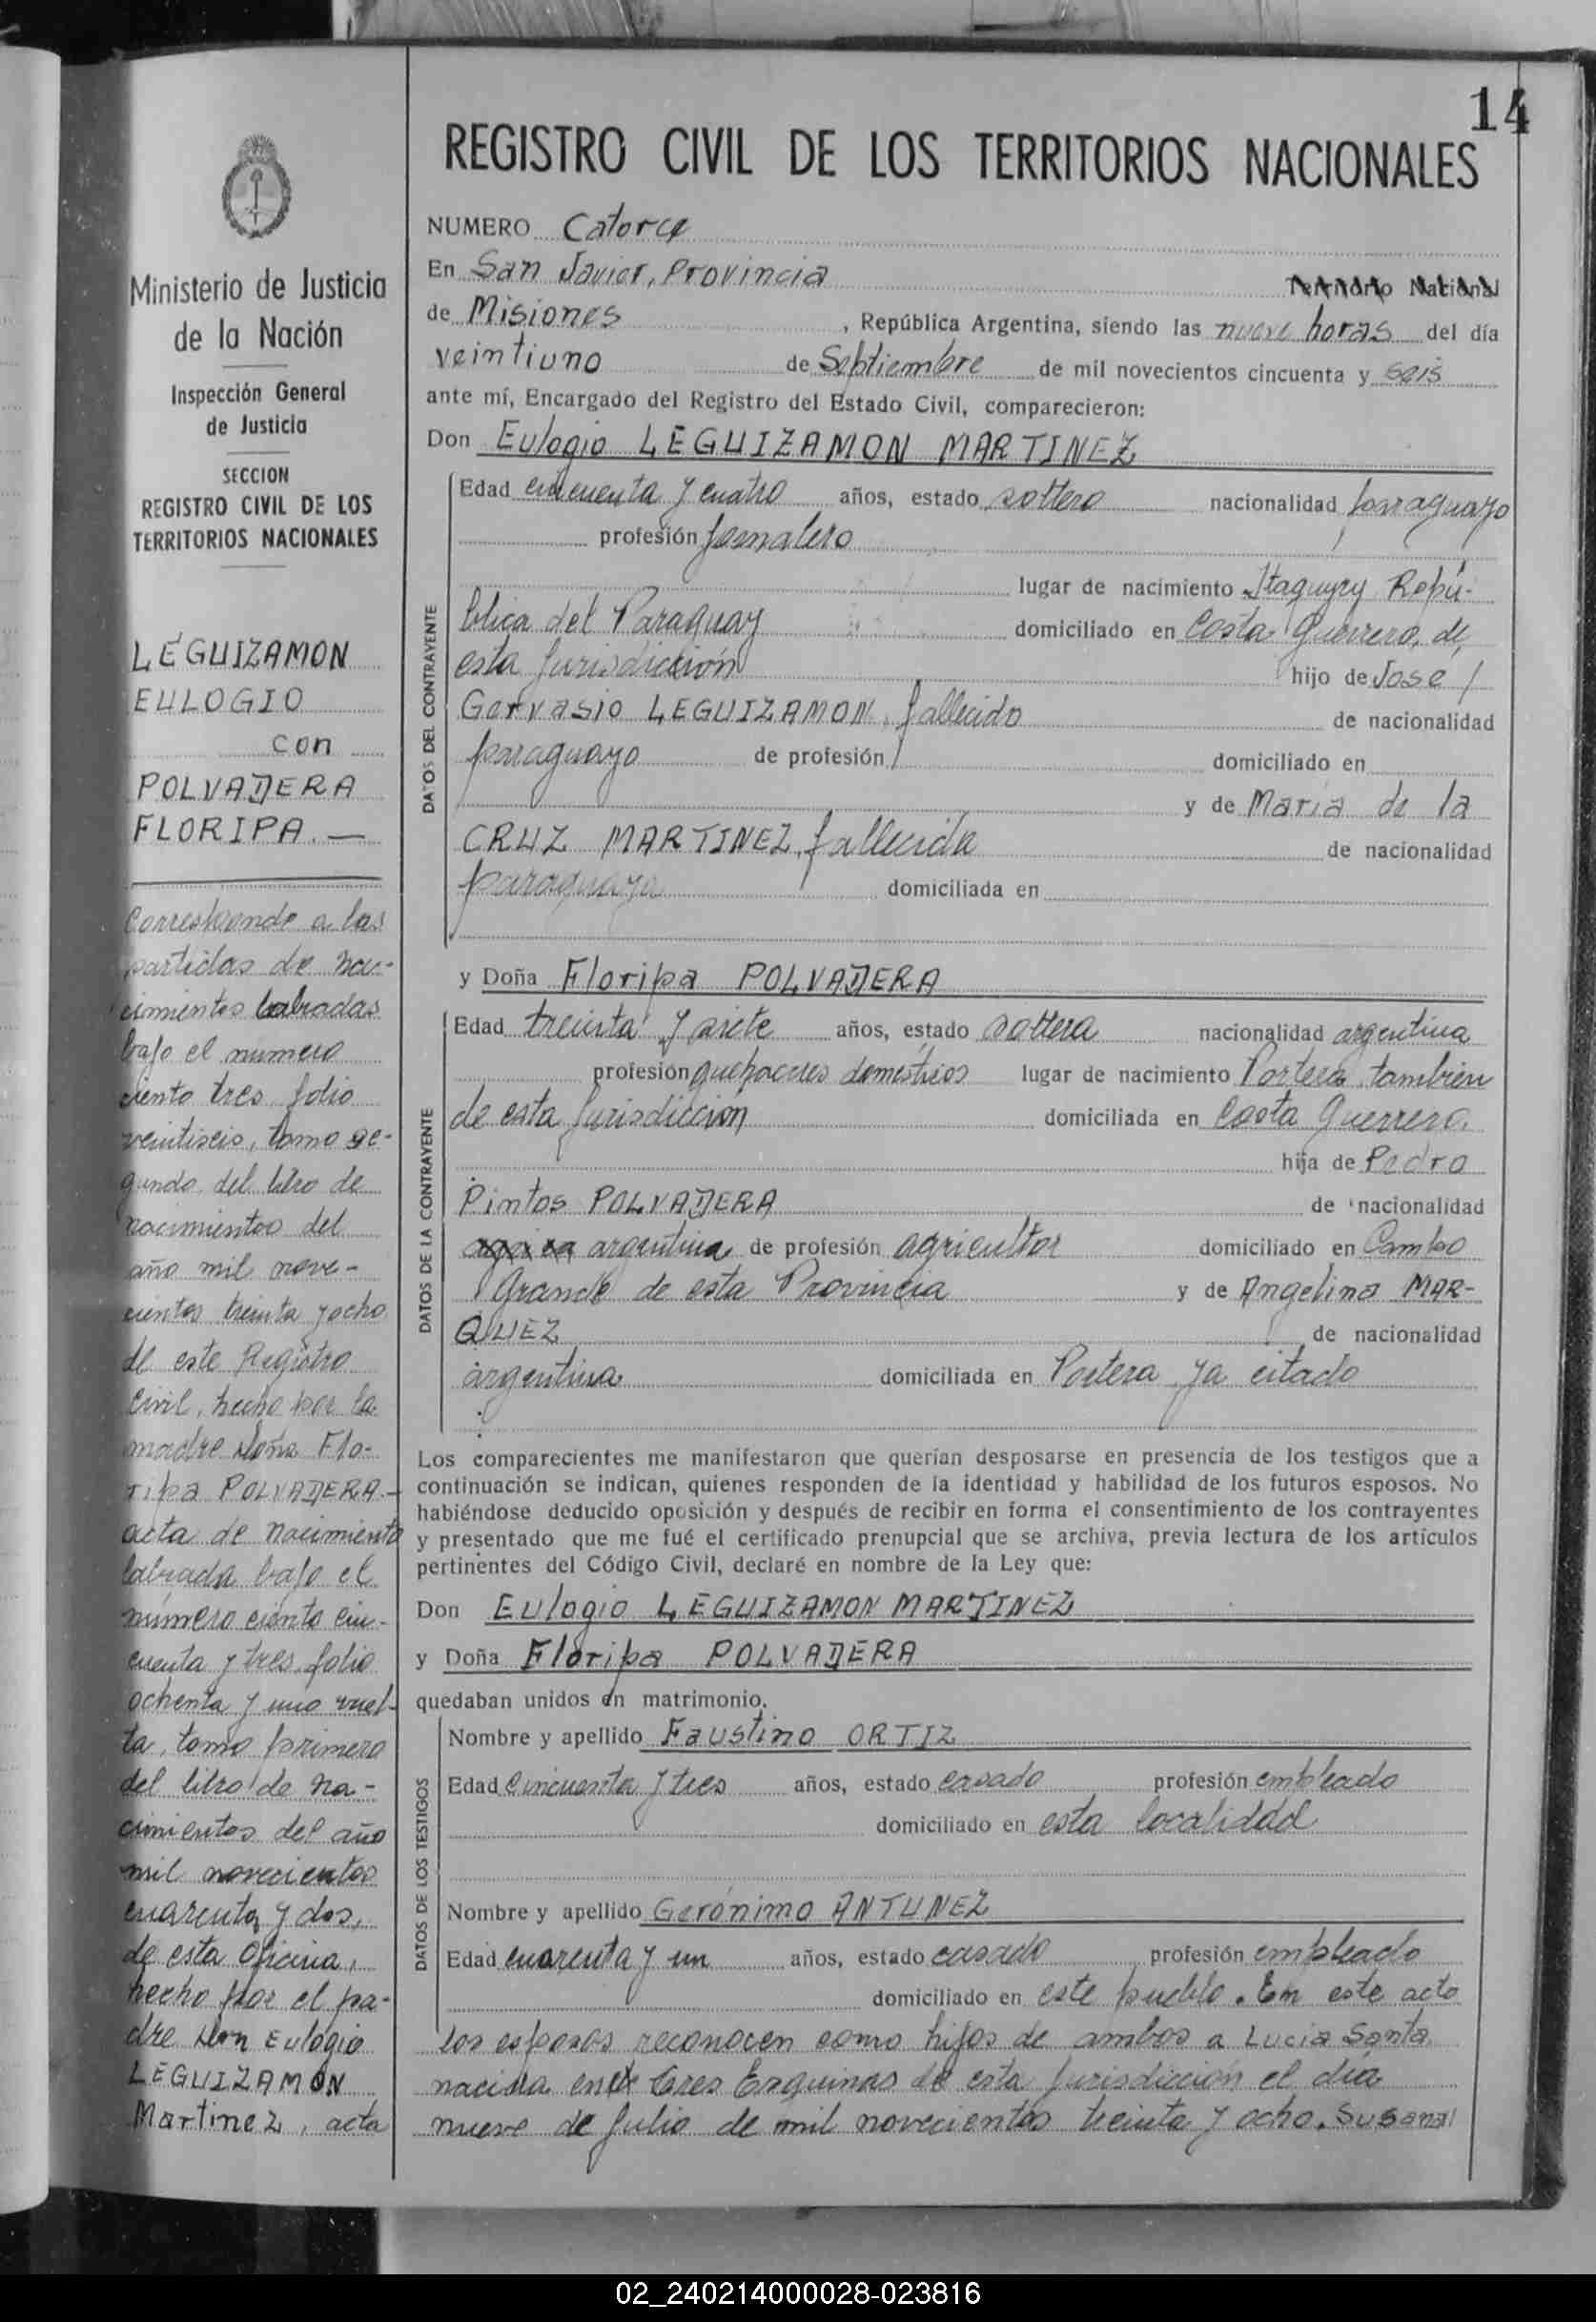 14
REGISTRO CIVIL DE LOS TERRITORIOS NACIONALES
Ministerio de Justicia
de la Nación
Inspección General
de Justicia
SECCION
REGISTRO CIVIL DE LOS
TERRITORIOS NACIONALES
LEGUIZAMON
EULOGIO
con
POLVADERA
FLORIPA.—
Corresponde a las
partidas de na-
cimientos labradas
bajo el numero
ciento tres folio
veintiseis, tomo se-
gundo del libro de
nacimientos del
año mil nove-
cientos treinta y ocho
de este Registro
Civil, hecho por la
madre doña Flo-
ripa POLVADERA.-
acta de nacimiento
labrada bajo el
número ciento cin-
cuenta y tres folio
ochenta y uno vuel-
ta, tomo primero
del libro de na-
cimientos del año
mil novecientos
cuarenta y dos,
de esta Oficina,
hecho por el pa-
dre don Eulogio
LEGUIZAMON
Martinez, acta
NUMERO Catorce
En San Javier, Provincia Territorio Nacional
de Misiones, República Argentina, siendo las nueve horas del día
veintiuno de Septiembre de mil novecientos cincuenta y seis
ante mí, Encargado del Registro del Estado Civil, comparecieron:
Don Eulogio LEGUIZAMON MARTINEZ
DATOS DEL CONTRAYENTE
Edad cincuenta y cuatro años, estado soltero nacionalidad paraguayo
profesión jornalero
lugar de nacimiento Itaquyry Repú-
blica del Paraguay domiciliado en Costa Guerrero, de
esta jurisdicción hijo de José
Gervasio LEGUIZAMON, fallecido de nacionalidad
paraguayo de profesión / domiciliado en
y de Maria de la
CRUZ MARTINEZ, fallecida de nacionalidad
paraguaya domiciliada en
y Doña Floripa POLVADERA
DATOS DE LA CONTRAYENTE
Edad treinta y siete años, estado soltera nacionalidad argentina
profesión quehaceres domésticos lugar de nacimiento Portera, tambien
de esta jurisdicción domiciliada en Costa Guerrero.
hija de Pedro
Pintos POLVADERA de nacionalidad
argentina de profesión agricultor domiciliado en Campo
Grande de esta Provincia y de Angelina MAR-
QUEZ de nacionalidad
argentina domiciliada en Portera ya citado
Los comparecientes me manifestaron que querían desposarse en presencia de los testigos que a
continuación se indican, quienes responden de la identidad y habilidad de los futuros esposos. No
habiéndose deducido oposición y después de recibir en forma el consentimiento de los contrayentes
y presentado que me fué el certificado prenupcial que se archiva, previa lectura de los artículos
pertinentes del Código Civil, declaré en nombre de la Ley que:
Don Eulogio LEGUIZAMON MARTINEZ
y Doña Floripa POLVADERA
quedaban unidos en matrimonio.
DATOS DE LOS TESTIGOS
Nombre y apellido Faustino ORTIZ
Edad cincuenta y tres años, estado casado profesión empleado
domiciliado en esta localidad
Nombre y apellido Gerónimo ANTUNEZ
Edad cuarenta y un años, estado casado profesión empleado
domiciliado en este pueblo. En este acto
los esposos reconocen como hijos de ambos a Lucia Santa
nacida en Tres Esquinas de esta jurisdicción el día
nueve de julio de mil novecientos treinta y ocho. Susana
02_240214000028-023816